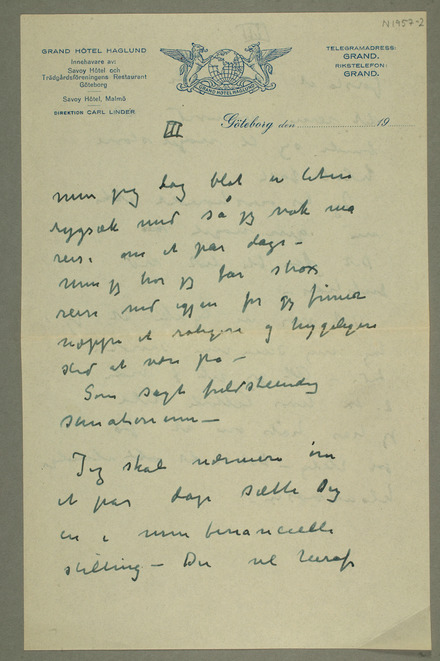 N1957-2
GRAND HÔTEL HAGLUND
Innehavare av:
Savoy Hôtel och
Trädgårdsföreningens Restaurant
Göteborg
Savoy Hôtel, Malmö
DIREKTION CARL LINDER
GRAND HÔTEL HAGLUND
TELEGRAMADRESS:
GRAND.
RIKSTELEFON:
GRAND.
III
Göteborg den 19
men jeg dog blot en liten
rygsæk med så jeg nok må
reise om et par dage –
men jeg tror jeg tar strax
reise ned igjen for jeg finner
neppe et roligere og hyggeligere
sted at være på –
Som sagt fuldstændig
sanatorium –
Jeg skal nærmere om
et par dage sætte Dig
in i min financielle
stilling – Du vil heraf